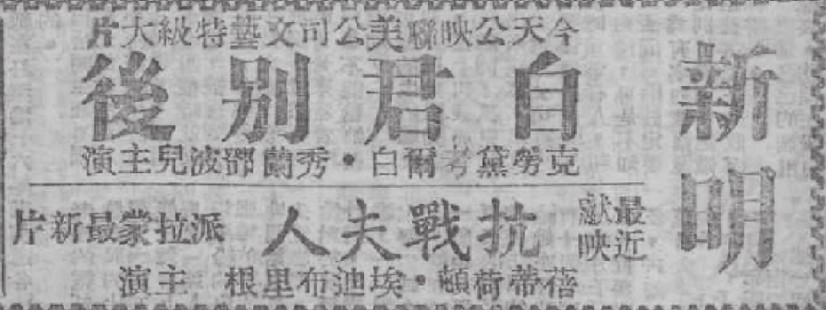 新明
今天公映聯美公司文藝特級大片
自君別後
克勞黛考爾白·秀蘭鄧波兒主演
最近獻映
抗戰夫人
派拉蒙最新片
蓓蒂荷頓·埃迪布里根 主演